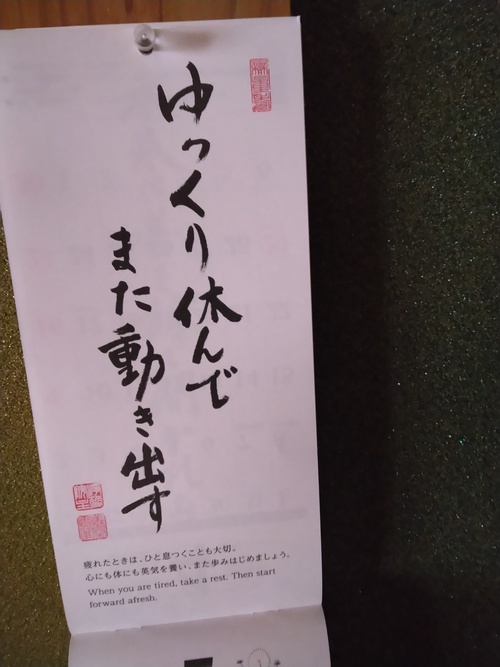 ゆっくり休んで
また動き出す
疲れたときは、ひと息つくことも大切。
心にも体にも英気を養い、また歩みはじめましょう。
When you are tired, take a rest. Then start
forward afresh.